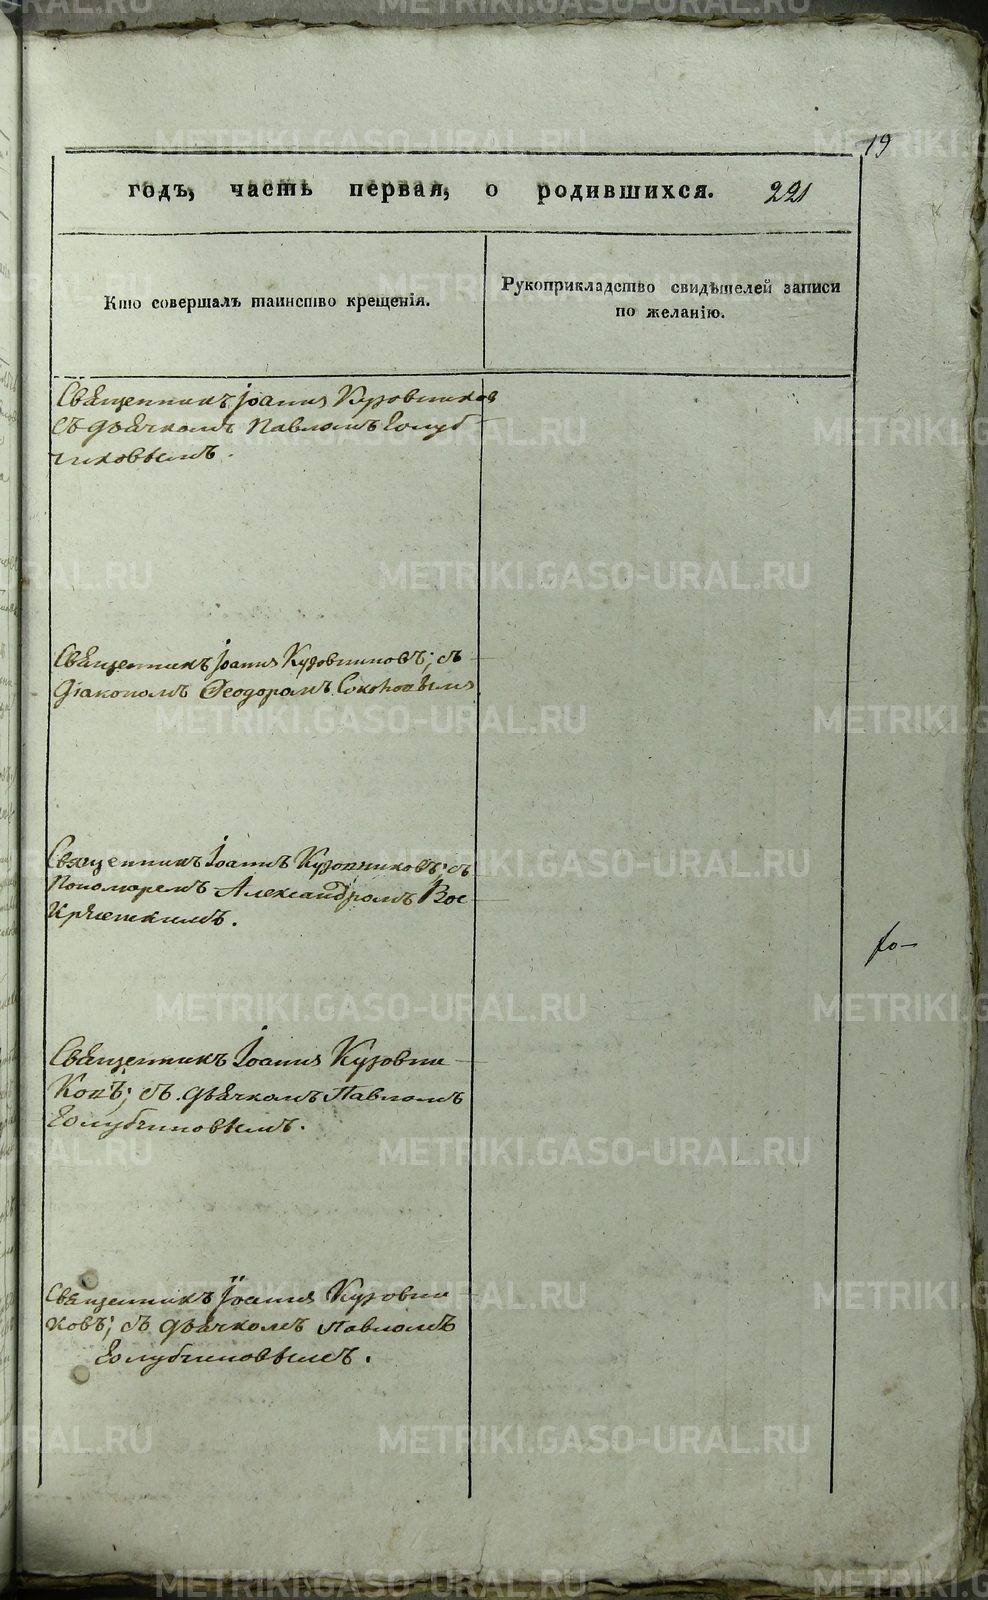 METRIKI.GASO-URAL.RU
19
годъ, часть первая, о родившихся. 221
Кто совершалъ таинство крещенія.
Рукоприкладство свидѣтелей записи
по желанію.
Священникъ Іоаннъ Кузовников
съ дьячкомъ Павломъ Голуб
чиковымъ.
Священникъ Іоаннъ Кузовниковъ; съ
Діакономъ Ѳеодоромъ
Священникъ Іоаннъ Кузовниковъ; съ
Пономаремъ Александромъ Вос
Священникъ Іоаннъ Кузовни
ковъ; съ дьячкомъ Павломъ
Голубчиковымъ.
Священникъ Іоаннъ Кузовни
ковъ; съ дьячкомъ Павломъ
Голубчиковымъ.